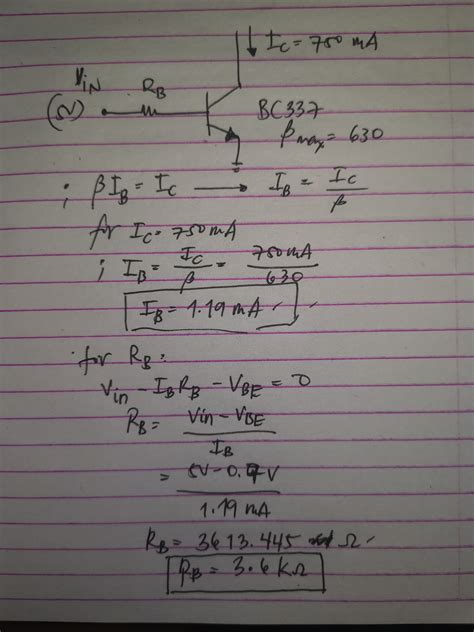 I_C = 750 mA
V_IN
R_B
(5V)
BC337
β_max = 630
; βI_B = I_C → I_B = I_C/β
for I_C = 750mA
; I_B = I_C/β = 750mA/630
I_B = 1.19 mA
for R_B:
V_in - I_B R_B - V_BE = 0
R_B = Vin - V_BE / I_B
= 5V - 0.7V / 1.19 mA
R_B = 3613.445 Ω
R_B = 3.6 kΩ